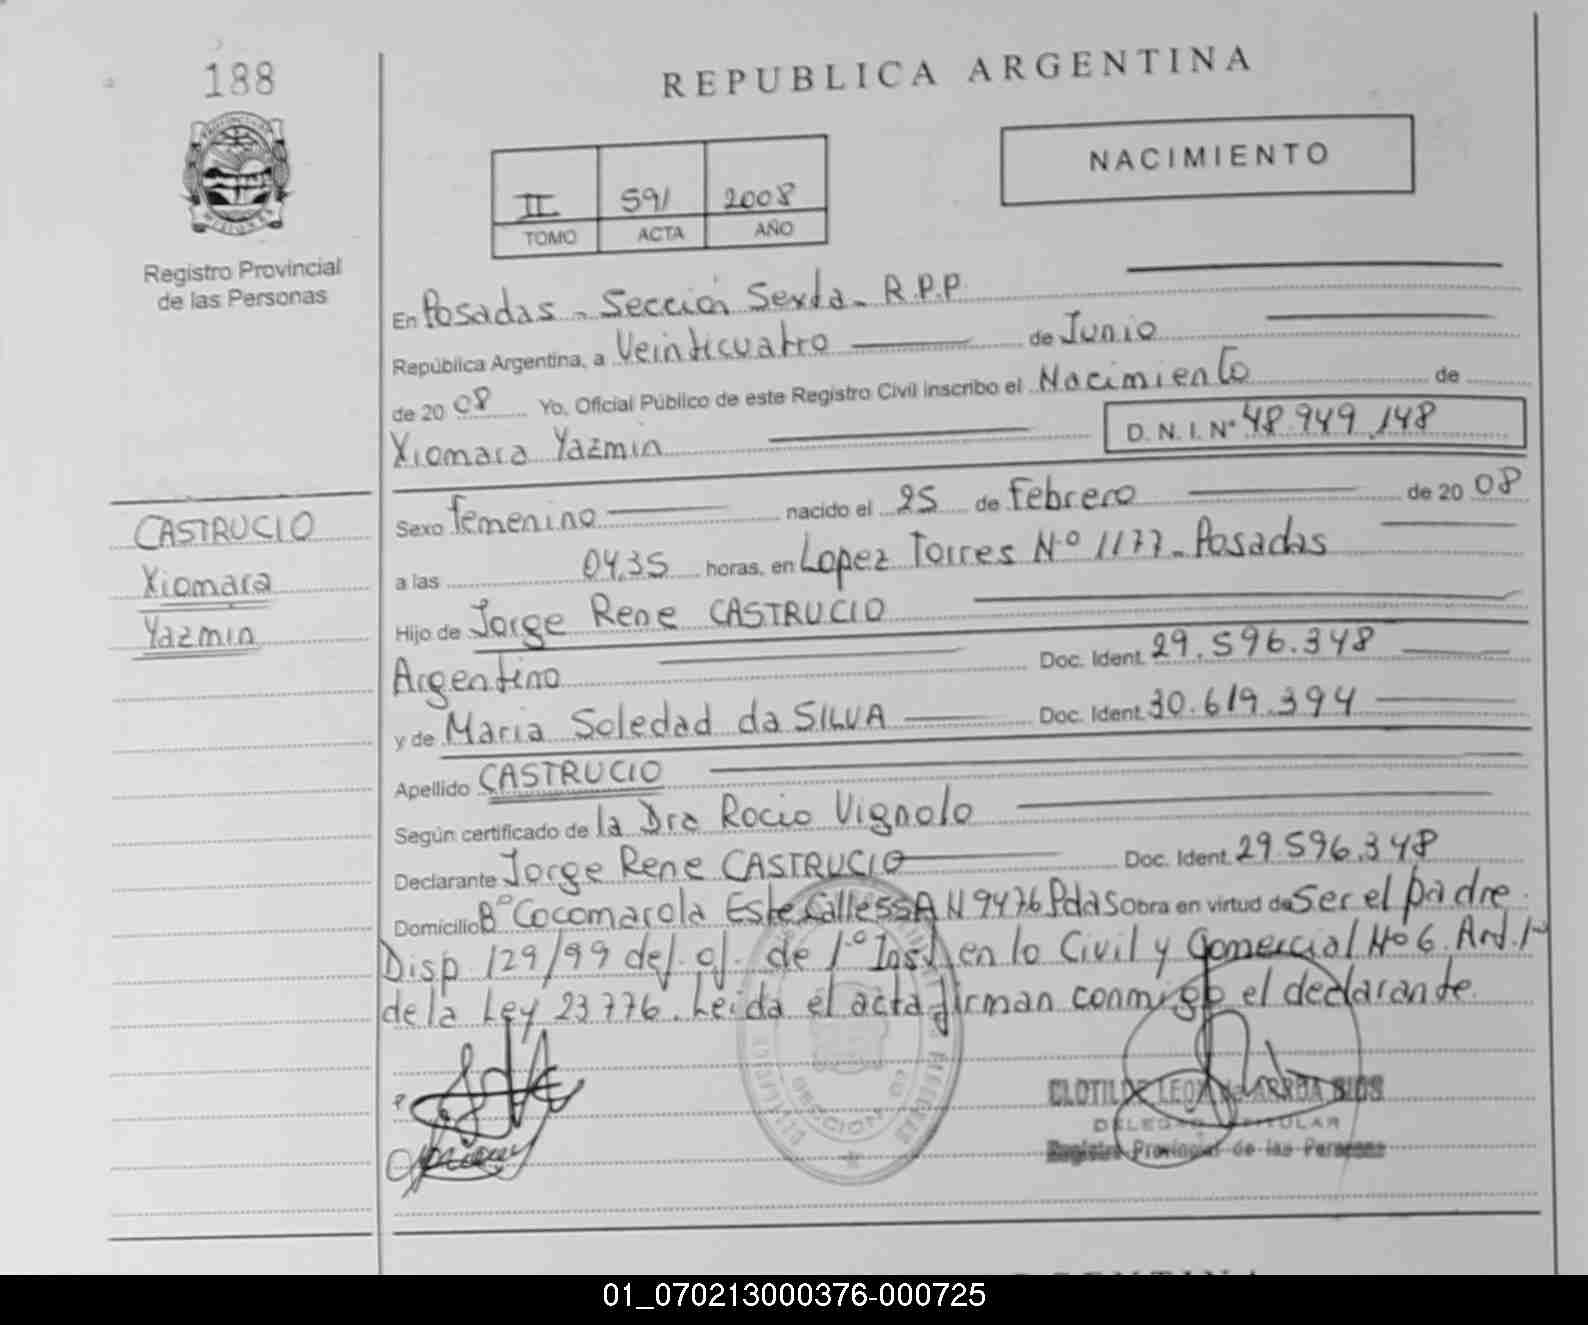 188
REPUBLICA ARGENTINA
NACIMIENTO
II 591 2008
TOMO ACTA AÑO
Registro Provincial
de las Personas
En Posadas - Sección Sexta - R.P.P.
República Argentina, a Veinticuatro de Junio
de 20 08 Yo, Oficial Público de este Registro Civil inscribo el Nacimiento de
Xiomara Yazmin D. N. I. Nº 48.949.148
CASTRUCIO
Xiomara
Yazmin
Sexo femenino nacido el 25 de Febrero de 20 08
a las 04,35 horas, en Lopez Torres Nº 1177 - Posadas
Hijo de Jorge Rene CASTRUCIO
Argentino Doc. Ident. 29.596.348
y de Maria Soledad da SILVA Doc. Ident. 30.619.394
Apellido CASTRUCIO
Según certificado de la Dra Rocio Vignolo
Declarante Jorge Rene CASTRUCIO Doc. Ident. 29.596.348
Domicilio Bº Cocomarola Este Calle 55A N 9476 Pdas Obra en virtud de Ser el padre.
Disp. 129/99 del de 1º Inst en lo Civil y Comercial Nº 6. Art. 1º
de la Ley 23776. Leida el acta firman conmigo el declarante.
SECCION 6ª
DELEGADO TITULAR
Registro Provincial de las Personas
01_070213000376-000725